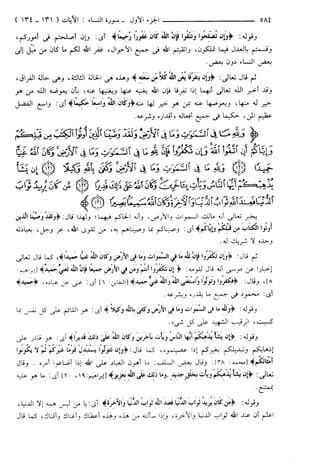 ٥٨٤ الجزء الأول - سورة النساء: الآيات (١٣١ - ١٣٤)
وقوله: ﴿وإن تصلحوا وتتقوا فإن الله كان غفورا رحيما﴾ أي: وإن أصلحتم في أموركم،
وقسمتم بالعدل فيما تملكون، واتقيتم الله في جميع الأحوال، غفر الله لكم ما كان من ميل إلى
بعض النساء دون بعض.
ثم قال تعالى: ﴿وإن يتفرقا يغن الله كلا من سعته﴾ وهذه هي الحالة الثالثة، وهي حالة الفراق،
وقد أخبر الله تعالى أنهما إذا تفرقا فإن الله يغنيه عنها ويغنيها عنه، بأن يعوضه الله من هو
خير له منها، ويعوضها عنه بمن هو خير لها منه ﴿وكان الله واسعا حكيما﴾ أي: واسع الفضل
عظيم المن، حكيما في جميع أفعاله وأقداره وشرعه.
﴿ولله ما في السموات وما في الأرض ولقد وصينا الذين أوتوا الكتب من قبلكم
وإياكم أن اتقوا الله وإن تكفروا فإن لله ما في السموات وما في الأرض وكان الله غنيا
حميدا ولله ما في السموات وما في الأرض وكفى بالله وكيلا إن يشأ
يذهبكم أيها الناس ويأت بآخرين وكان الله على ذلك قديرا من كان يريد ثواب
الدنيا فعند الله ثواب الدنيا والآخرة وكان الله سميعا بصيرا﴾
يخبر تعالى أنه مالك السموات والأرض، وأنه الحاكم فيهما؛ ولهذا قال: ﴿ولقد وصينا الذين
أوتوا الكتاب من قبلكم وإياكم﴾ أي: وصيناكم بما وصيناهم به، من تقوى الله، عز وجل، بعبادته
وحده لا شريك له.
ثم قال: ﴿وإن تكفروا فإن لله ما في السموات وما في الأرض وكان الله غنيا حميدا﴾، كما قال تعالى
إخبارا عن موسى أنه قال لقومه: ﴿إن تكفروا أنتم ومن في الأرض جميعا فإن الله لغني حميد﴾ [إبراهيم:
٨]، وقال: ﴿فكفروا وتولوا واستغنى الله والله غني حميد﴾ [التغابن: ٦] أي: غني عن عباده، ﴿حميد﴾
أي: محمود في جميع ما يقدره ويشرعه.
وقوله: ﴿ولله ما في السموات وما في الأرض وكفى بالله وكيلا﴾ أي: هو القائم على كل نفس بما
كسبت، الرقيب الشهيد على كل شيء.
وقوله: ﴿إن يشأ يذهبكم أيها الناس ويأت بآخرين وكان الله على ذلك قديرا﴾ أي: هو قادر على
إذهابكم وتبديلكم بغيركم إذا عصيتموه، كما قال: ﴿وإن تتولوا يستبدل قوما غيركم ثم لا يكونوا
أمثالكم﴾ [محمد: ٣٨]. وقال بعض السلف: ما أهون العباد على الله إذا أضاعوا أمره. وقال
تعالى: ﴿إن يشأ يذهبكم ويأت بخلق جديد. وما ذلك على الله بعزيز﴾ [إبراهيم: ١٩، ٢٠] أي: ما هو عليه
بممتنع.
وقوله: ﴿من كان يريد ثواب الدنيا فعند الله ثواب الدنيا والآخرة﴾ أي: يا من ليس همه إلا الدنيا،
اعلم أن عند الله ثواب الدنيا والآخرة، وإذا سألته من هذه وهذه أعطاك وأغناك وأقناك، كما قال